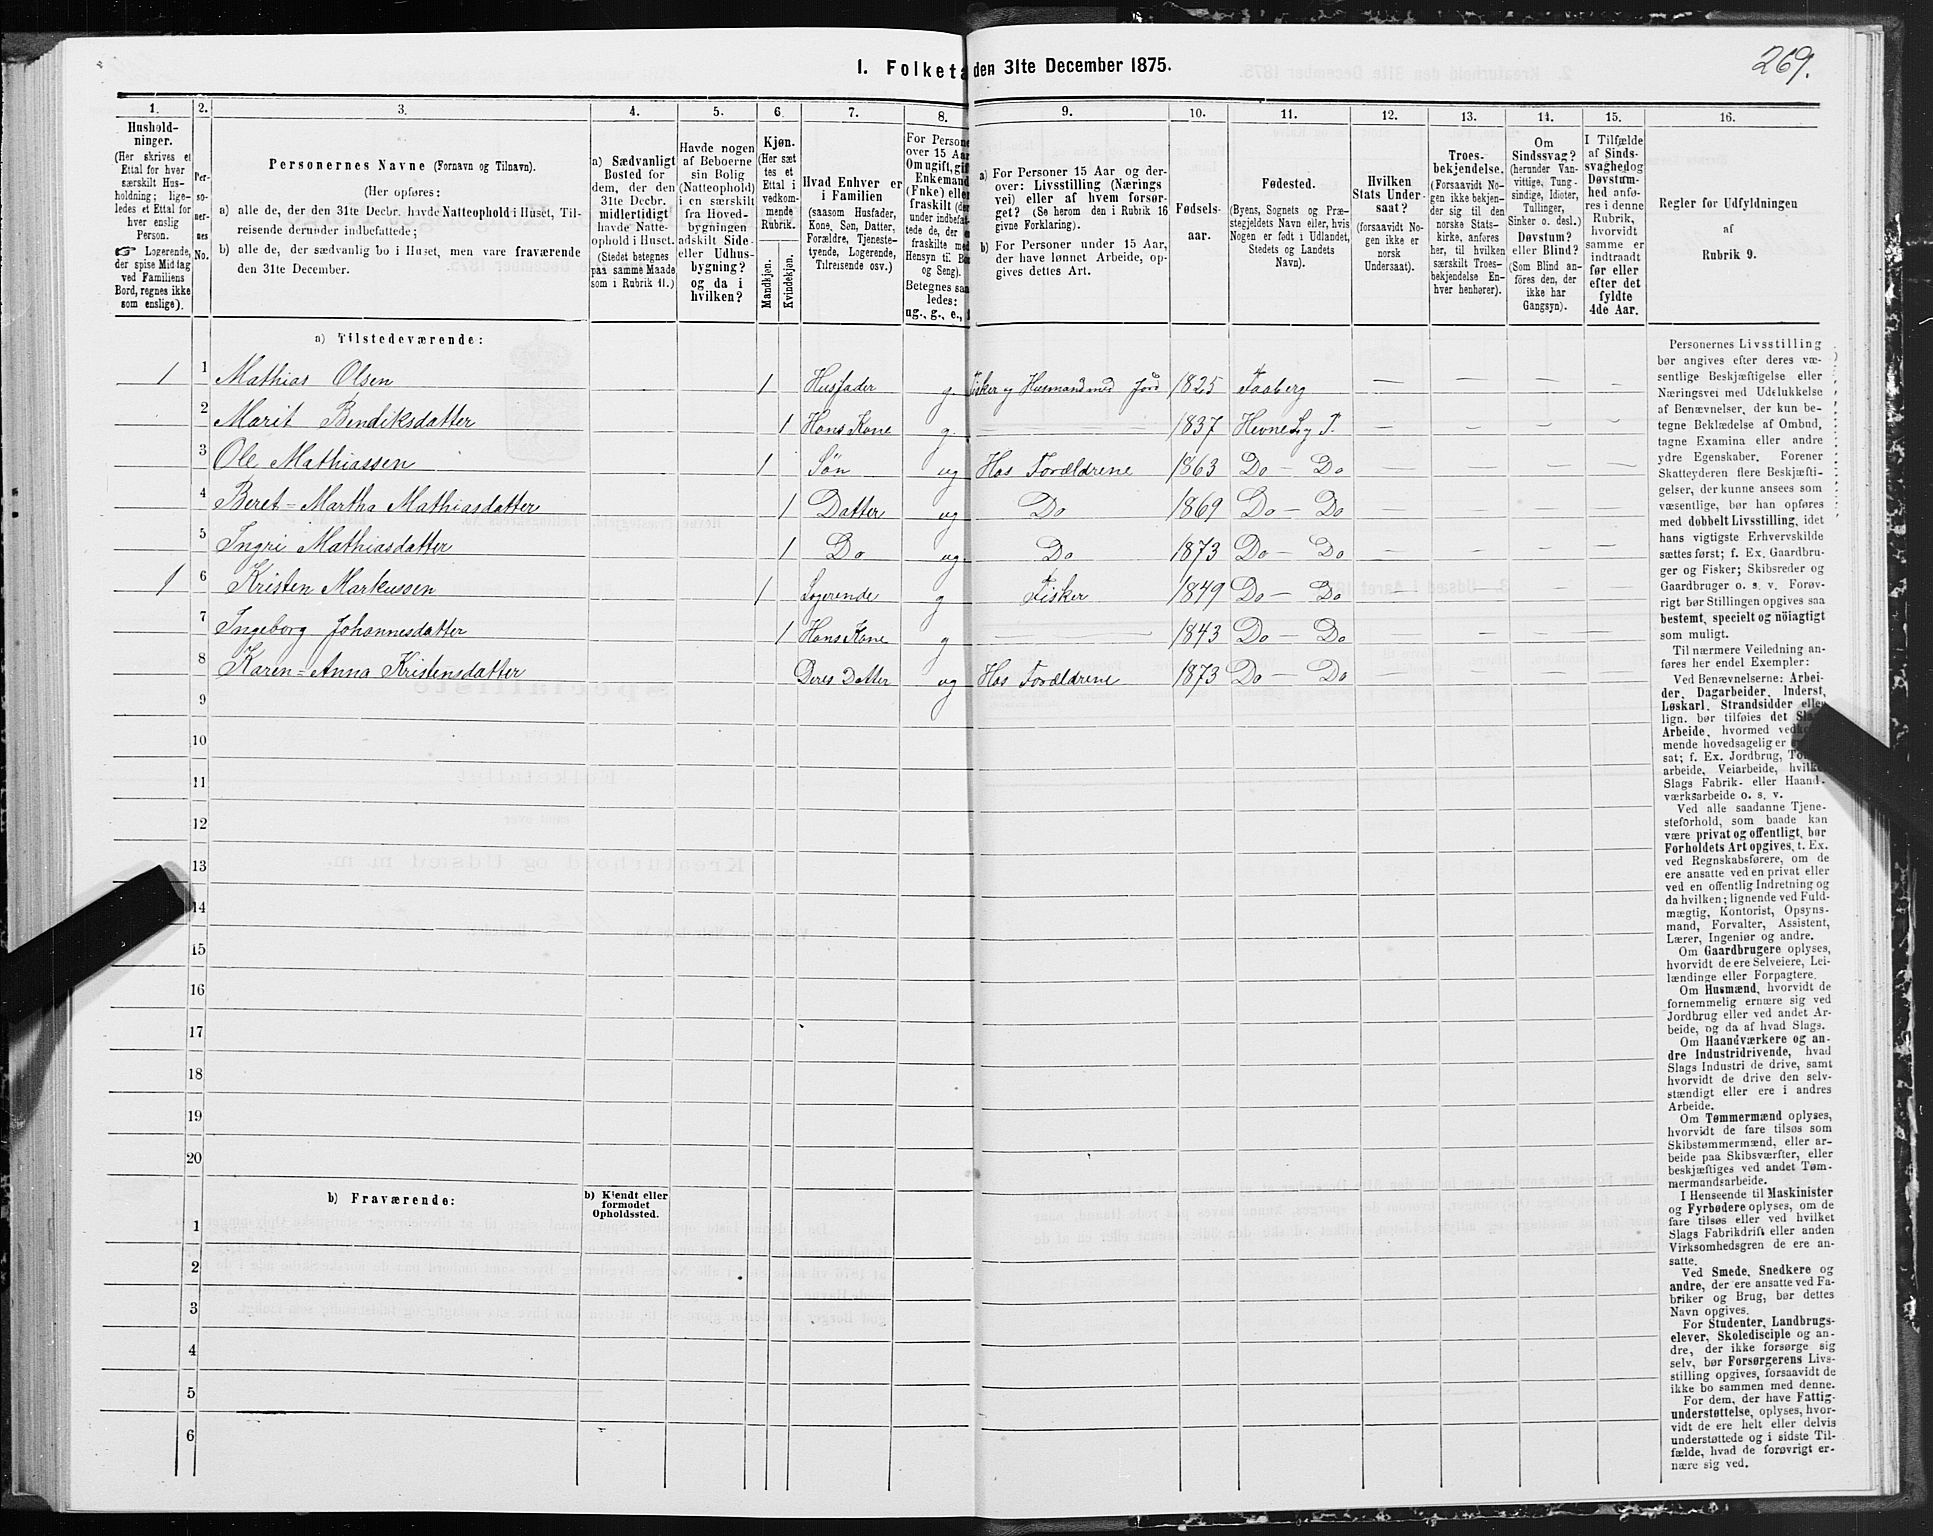 269.
1. Folketa den 31te December 1875.
1. 2. 3. 4. 5. 6. 7. 8. 9. 10. 11. 12. 13. 14. 15. 16.
Hushold-
ninger.
(Her skrives et
Ettal for hver
særskilt Hus-
holdning; lige-
ledes et Ettal for
hver enslig
Person.
☞ Logerende,
der spise Middag
ved Familiens
Bord, regnes ikke
som enslige).
Per-
so-
ner-
nes
No.
Personernes Navne (Fornavn og Tilnavn).
(Her opføres:
a) alle de, der den 31te Decbr. havde Natteophold i Huset, Til-
reisende derunder indbefattede;
b) alle de, der sædvanlig bo i Huset, men vare fraværende
den 31te December.
a) Sædvanligt
Bosted for
dem, der den
31te Decbr.
midlertidigt
havde Natte-
ophold i Huset.
(Stedet betegnes
paa samme Maade
som i Rubrik 11.)
Havde nogen
af Beboerne
sin Bolig
(Natteophold)
i en særskilt
fra Hoved-
bygningen
adskilt Side-
eller Udhus-
bygning?
og da i
hvilken?
Kjøn.
(Her sæt
tes et
Ettal i
vedkom-
mende
Rubrik.
Mandkjøn.
Kvindekjøn.
Hvad Enhver er
i Familien
(saasom Husfader,
Kone, Søn, Datter,
Forældre, Tjeneste-
tyende, Logerende,
Tilreisende osv.)
For Persone
over 15 Aar
Om ugift, gif
Enkemand
(Enke) elle
fraskilt (der
under indbefat-
tede de, der e
fraskilte med
Hensyn til Bo
og Seng).
Betegnes saa
ledes:
ug., g., e., f
a) For Personer 15 Aar og der-
over: Livsstilling (Nærings
vei) eller af hvem forsør-
get? (Se herom den i Rubrik 16
givne Forklaring).
b) For Personer under 15 Aar,
der have lønnet Arbeide, op-
gives dettes Art.
Fødsels-
aar.
Fødested.
(Byens, Sognets og Præ-
stegjeldets Navn eller, hvis
Nogen er født i Udlandet,
Stedets og Landets
Navn).
Hvilken
Stats Under-
saat?
(forsaavidt No-
gen ikke er
norsk
Undersaat).
Troes-
bekjendelse.
(Forsaavidt No-
gen ikke bekjen-
der sig til den
norske Stats-
kirke, anføres
her, til hvilken
særskilt Troes-
bekjendelse En-
hver henhører).
Om
Sindssvag?
(herunder Van-
vittige, Tung-
sindige, Idioter,
Tullinger,
Sinker o. desl.)
Døvstum?
eller Blind?
(Som Blind an-
føres den, der
ikke har
Gangsyn).
I Tilfælde
af Sinds-
svaghed og
Døvstum-
hed anfø-
res i denne
Rubrik,
hvorvidt
samme er
indtraadt
før eller
efter det
fyldte
4de Aar.
Regler for Udfyldningen
af
Rubrik 9.
a) Tilstedeværende:
1 1 Mathias Olsen 1 Husfader g Fisker og Husmand med Jord 1825 Faaberg — — — —
2 Marit Bendiksdatter 1 Hans Kone g. — — — 1837 Hevne S. og P. — — — —
3 Ole Mathiassen 1 Søn ug Hos Forældrene 1863 Do — Do — — — —
4 Beret-Martha Mathiasdatter 1 Datter ug Do 1869 Do — Do — — — —
5 Ingri Mathiasdatter 1 Do ug Do 1873 Do — Do — — — —
1 6 Kristen Markussen 1 Logerende g Fisker 1849 Do — Do — — — —
7 Ingeborg Johannesdatter 1 Hans Kone g — — 1843 Do — Do — — — —
8 Karen-Anna Kristensdatter Deres Datter ug Hos Forældrene 1873 Do — Do — — — —
9
10
11
12
13
14
15
16
17
18
19
20
b) Fraværende:
b) Kjendt eller
formodet
Opholdssted.
1
2
3
4
5
6
Personernes Livsstilling
bør angives efter deres væ-
sentlige Beskjæftigelse eller
Næringsvei med Udelukkelse
af Benævnelser, der kun be-
tegne Beklædelse af Ombud,
tagne Examina eller andre
ydre Egenskaber. Forener
Skatteyderen flere Beskjæfti-
gelser, der kunne ansees som
væsentlige, bør han opføres
med dobbelt Livsstilling, idet
hans vigtigste Erhvervskilde
sættes først; f. Ex. Gaardbru-
ger og Fisker; Skibsreder og
Gaardbruger o. s. v. Forøv-
rigt bør Stillingen opgives saa
bestemt, specielt og nøiagtigt
som muligt.
Til nærmere Veiledning an-
føres her endel Exempler:
Ved Benævnelserne: Arbei-
der, Dagarbeider, Inderst,
Løskarl, Strandsidder eller
lign. bør tilføies det Slags
Arbeide, hvormed vedkom-
mende hovedsagelig er
sat; f. Ex. Jordbrug, Tom-
arbeide, Veiarbeide, hvilket
Slags Fabrik- eller Haand-
værksarbeide o. s. v.
Ved alle saadanne Tjene-
steforhold, som baade kan
være privat og offentligt, bør
Forholdets Art opgives, t. Ex.
ved Regnskabsførere, om de
ere ansatte ved en privat eller
ved en offentlig Indretning og
da hvilken; lignende ved Fuld-
mægtig, Kontorist, Opsyns-
mand, Forvalter, Assistent,
Lærer, Ingeniør og andre.
Om Gaardbrugere oplyses,
hvorvidt de ere Selveiere, Lei-
lændinge eller Forpagtere.
Om Husmænd, hvorvidt de
fornemmelig ernære sig ved
Jordbrug eller ved andet Ar-
beide, og da af hvad Slags.
Om Haandværkere og an-
dre Industridrivende, hvad
Slags Industri de drive, samt
hvorvidt de drive den selv-
stændigt eller ere i andres
Arbeide.
Om Tømmermænd oplyses,
hvorvidt de fare tilsøs som
Skibstømmermænd, eller ar-
beide paa Skibsværfter, eller
beskjæftiges ved andet Tøm-
mermandsarbeide.
I Henseende til Maskinister
og Fyrbødere oplyses, om de
fare tilsøs eller ved hvilket
Slags Fabrikdrift eller anden
Virksomhedsgren de ere an-
satte.
Ved Smede, Snedkere og
andre, der ere ansatte ved Fa-
briker og Brug, bør dettes
Navn opgives.
For Studenter, Landbrugs-
elever, Skoledisciple og an-
dre, der ikke forsørge sig
selv, bør Forsørgerens Livs-
stilling opgives, forsaavidt de
ikke bo sammen med denne.
For dem, der have Fattig-
understøttelse, oplyses, hvor-
vidt de ere helt eller delvis
understøttede og i sidste Til-
fælde, hvad de forøvrigt er-
nære sig ved.